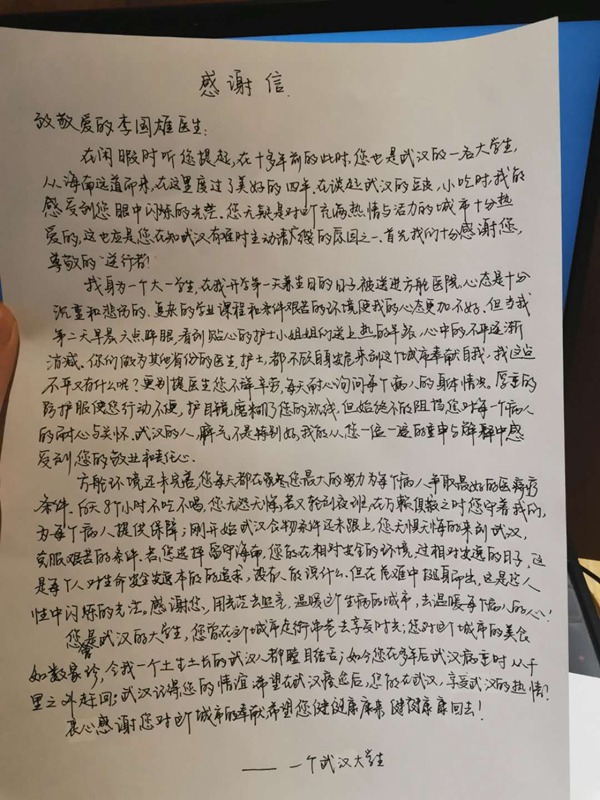 感谢信
致敬爱的李国雄医生:
在闲暇时听您提起,在十多年前的此时,您也是武汉的一名大学生,
从海南远道而来,在这里度过了美好的四年。在谈起武汉的豆皮,小吃时,我能
感受到您眼中闪烁的光芒。您无疑是对这个充满热情与活力的城市十分热
爱的,这也应是您在知武汉有难时主动请缨的原因之一。首先我们十分感谢您,
尊敬的"逆行者"!
我身为一个大一学生,在我开学第一天兼生日的日子,被送进方舱医院,心态是十分
沉重和悲伤的。复杂的学业课程和条件艰苦的环境使我的心态更加不好。但当我
第二天早晨六点睁眼,看到贴心的护士小姐姐们送上热的早饭,心中的不平逐渐
消减。你们做为其他省份的医生,护士,都不顾自身安危来到这个城市奉献自我,我这点
不平又有什么呢?更别提医生您不辞辛劳,每天耐心询问每个病人的身体情况。厚重的
防护服使您行动不便,护目镜模糊了您的视线,但始终不能阻挡您对每一个病人
的耐心与关怀。武汉的人脾气不是特别好,我能从您一遍一遍的重申与解释中感
受到,您的敬业和责任心。
方舱环境还未完善,您每天都在尽您最大的努力为每个病人争取最好的医疗
条件。白天8个小时不吃不喝,您无怨无悔,若又轮到夜班,在万籁俱寂之时您守着我们,
为每个病人提供保障;刚开始武汉食物条件还未跟上,您无惧无悔的来到武汉,
克服艰苦的条件。若您选择留守海南,您能在相对安全的环境,过相对安逸的日子,这
是每个人对生命安全发源本能的追求,没有人能说什么。但在危难中挺身而出,这是这人
性中闪烁的光芒。感谢您,用光芒去照亮,温暖这个生病的城市,去温暖每个病人的心!
您曾是武汉的大学生,您曾在这个城市走街串巷去享受时光;您对这个城市的美食
如数家珍,令我一个土生土长的武汉人都瞠目结舌;如今您在多年后武汉病重时从千
里之外赶回;武汉记得您的情谊,希望在武汉痊愈后,您能在武汉,享受武汉的热情!
衷心感谢您对这个城市的奉献,希望您健健康康来,健健康康回去!
——一个武汉大学生